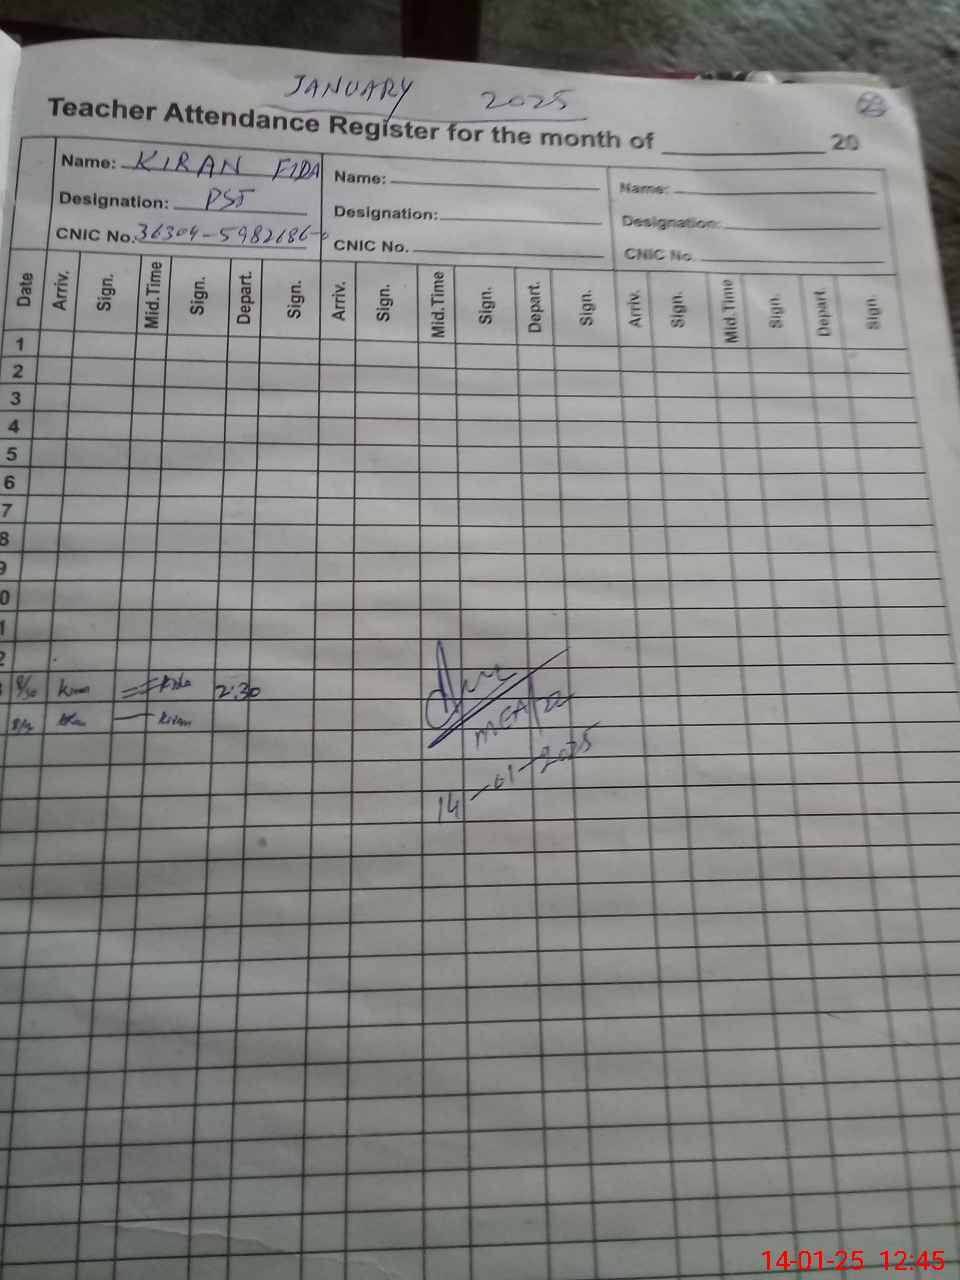 JANUARY 2025
Teacher Attendance Register for the month of ____________ 20
23
Name: KIRAN FIDA
Designation: PST
CNIC No. 36304-5982686-
Name:
Designation:
CNIC No.
Name:
Designation:
CNIC No.
Date Arriv. Sign. Mid.Time Sign. Depart. Sign. Arriv. Sign. Mid.Time Sign. Depart. Sign. Arriv. Sign. Mid.Time Sign. Depart. Sign.
1
2
3
4
5
6
7
8
9
0
1
2
8/30 kiran 2:30
kiran
MEA
14-01-2025
14-01-25 12:45